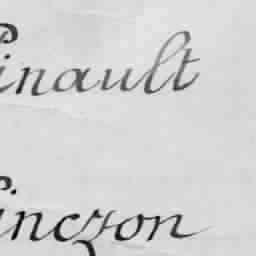 Pinault
Pinczon